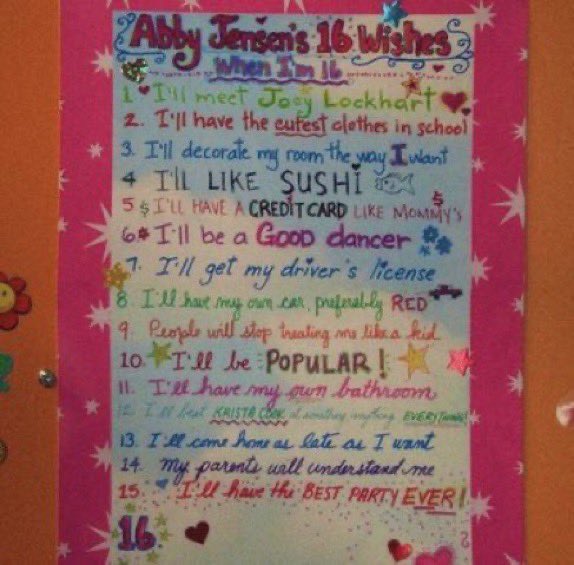 Abby Jensen's 16 Wishes
When I'm 16
1 I'll meet Joey Lockhart
2. I'll have the cutest clothes in school
3. I'll decorate my room the way I want
4 I'LL LIKE SUSHI
5 $ I'LL HAVE A CREDIT CARD LIKE MOMMY'S $
6. I'll be a GOOD dancer
7. I'll get my driver's license
8. I'll have my own car, preferably RED
9. People will stop treating me like a kid
10. I'll be POPULAR!
11. I'll have my own bathroom
12. I'll beat KRISTA COOK at something anything EVERYTHING!
13. I'll come home as late as I want
14. my parents will understand me
15. I'll have the BEST PARTY EVER!
16